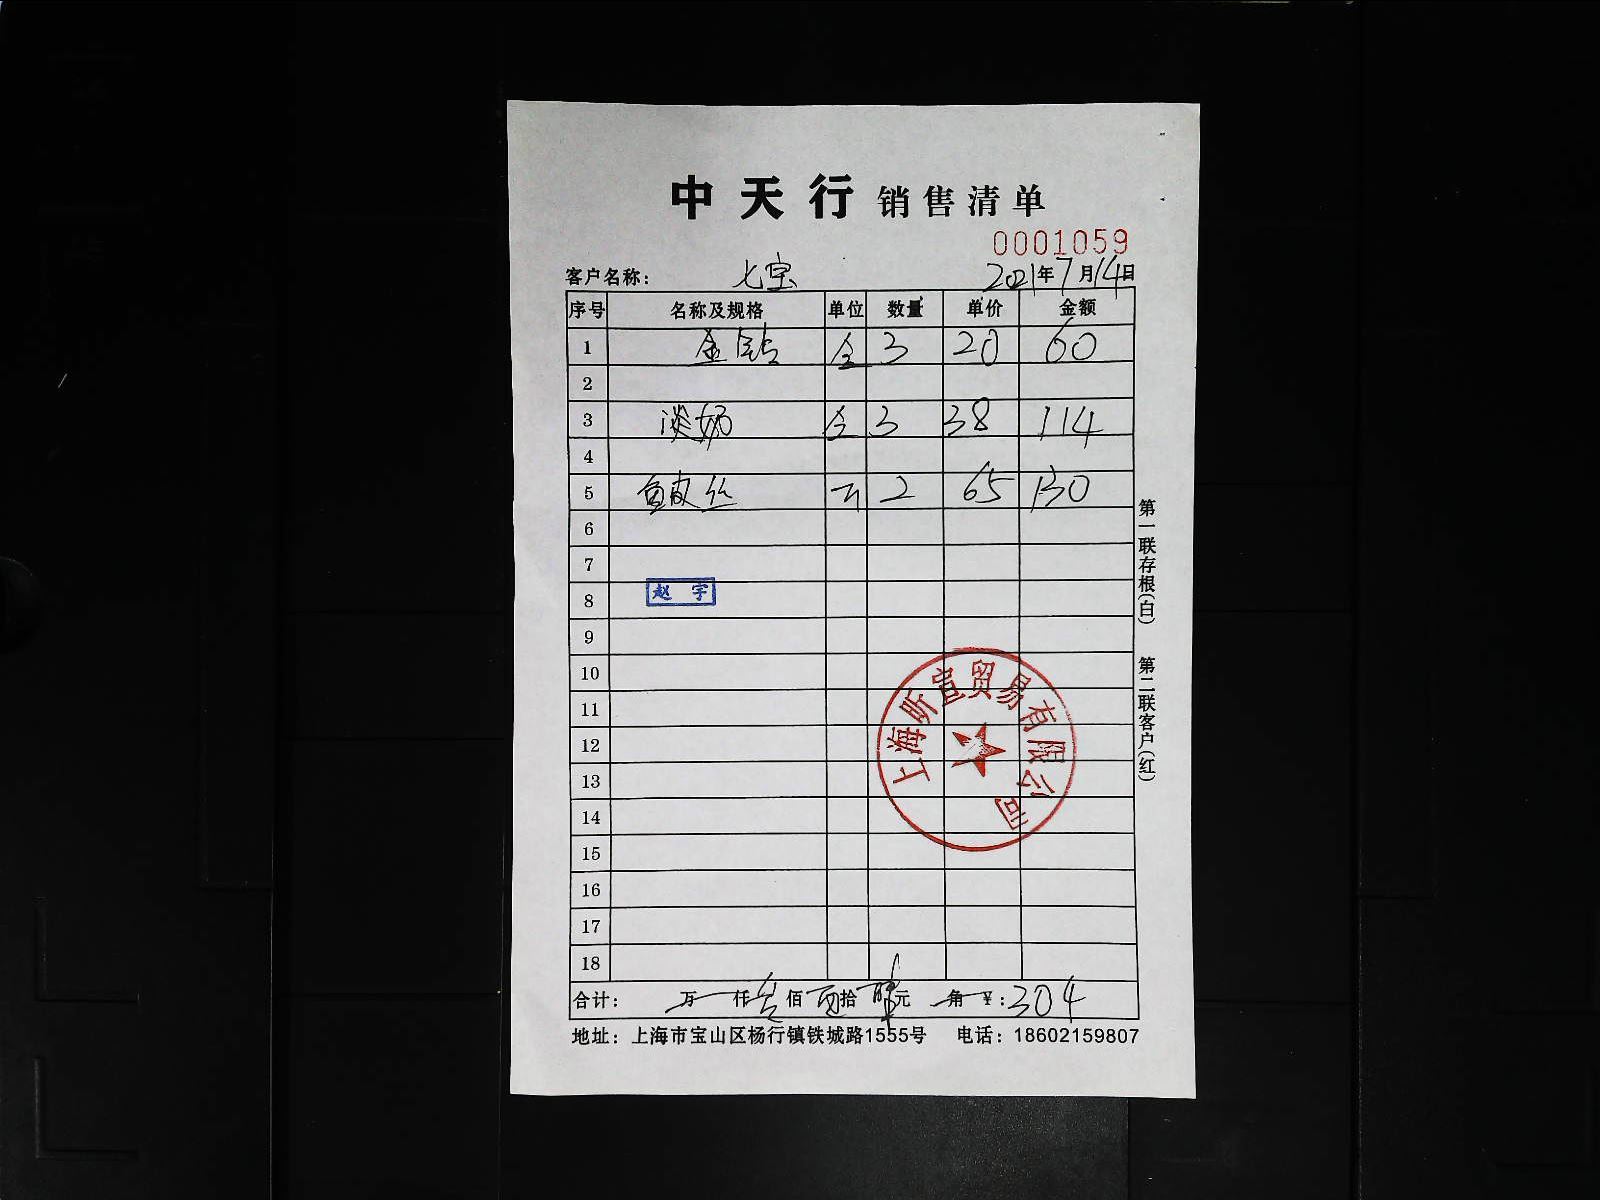 中天行 销售清单
0001059
客户名称: 七宝 2021年7月14日
序号 名称及规格 单位 数量 单价 金额
1 金钻 仝 3 20 60
2
3 淡奶 仝 3 38 114
4
5 鱼皮丝 2 65 130
6
7
8 赵宇
9
10
11
12
13
14
15
16
17
18
上海昕宣贸易有限公司
合计: 万 仟 佰 拾 元 角 ¥: 304
地址: 上海市宝山区杨行镇铁城路1555号 电话: 18602159807
第一联存根(白) 第二联客户(红)